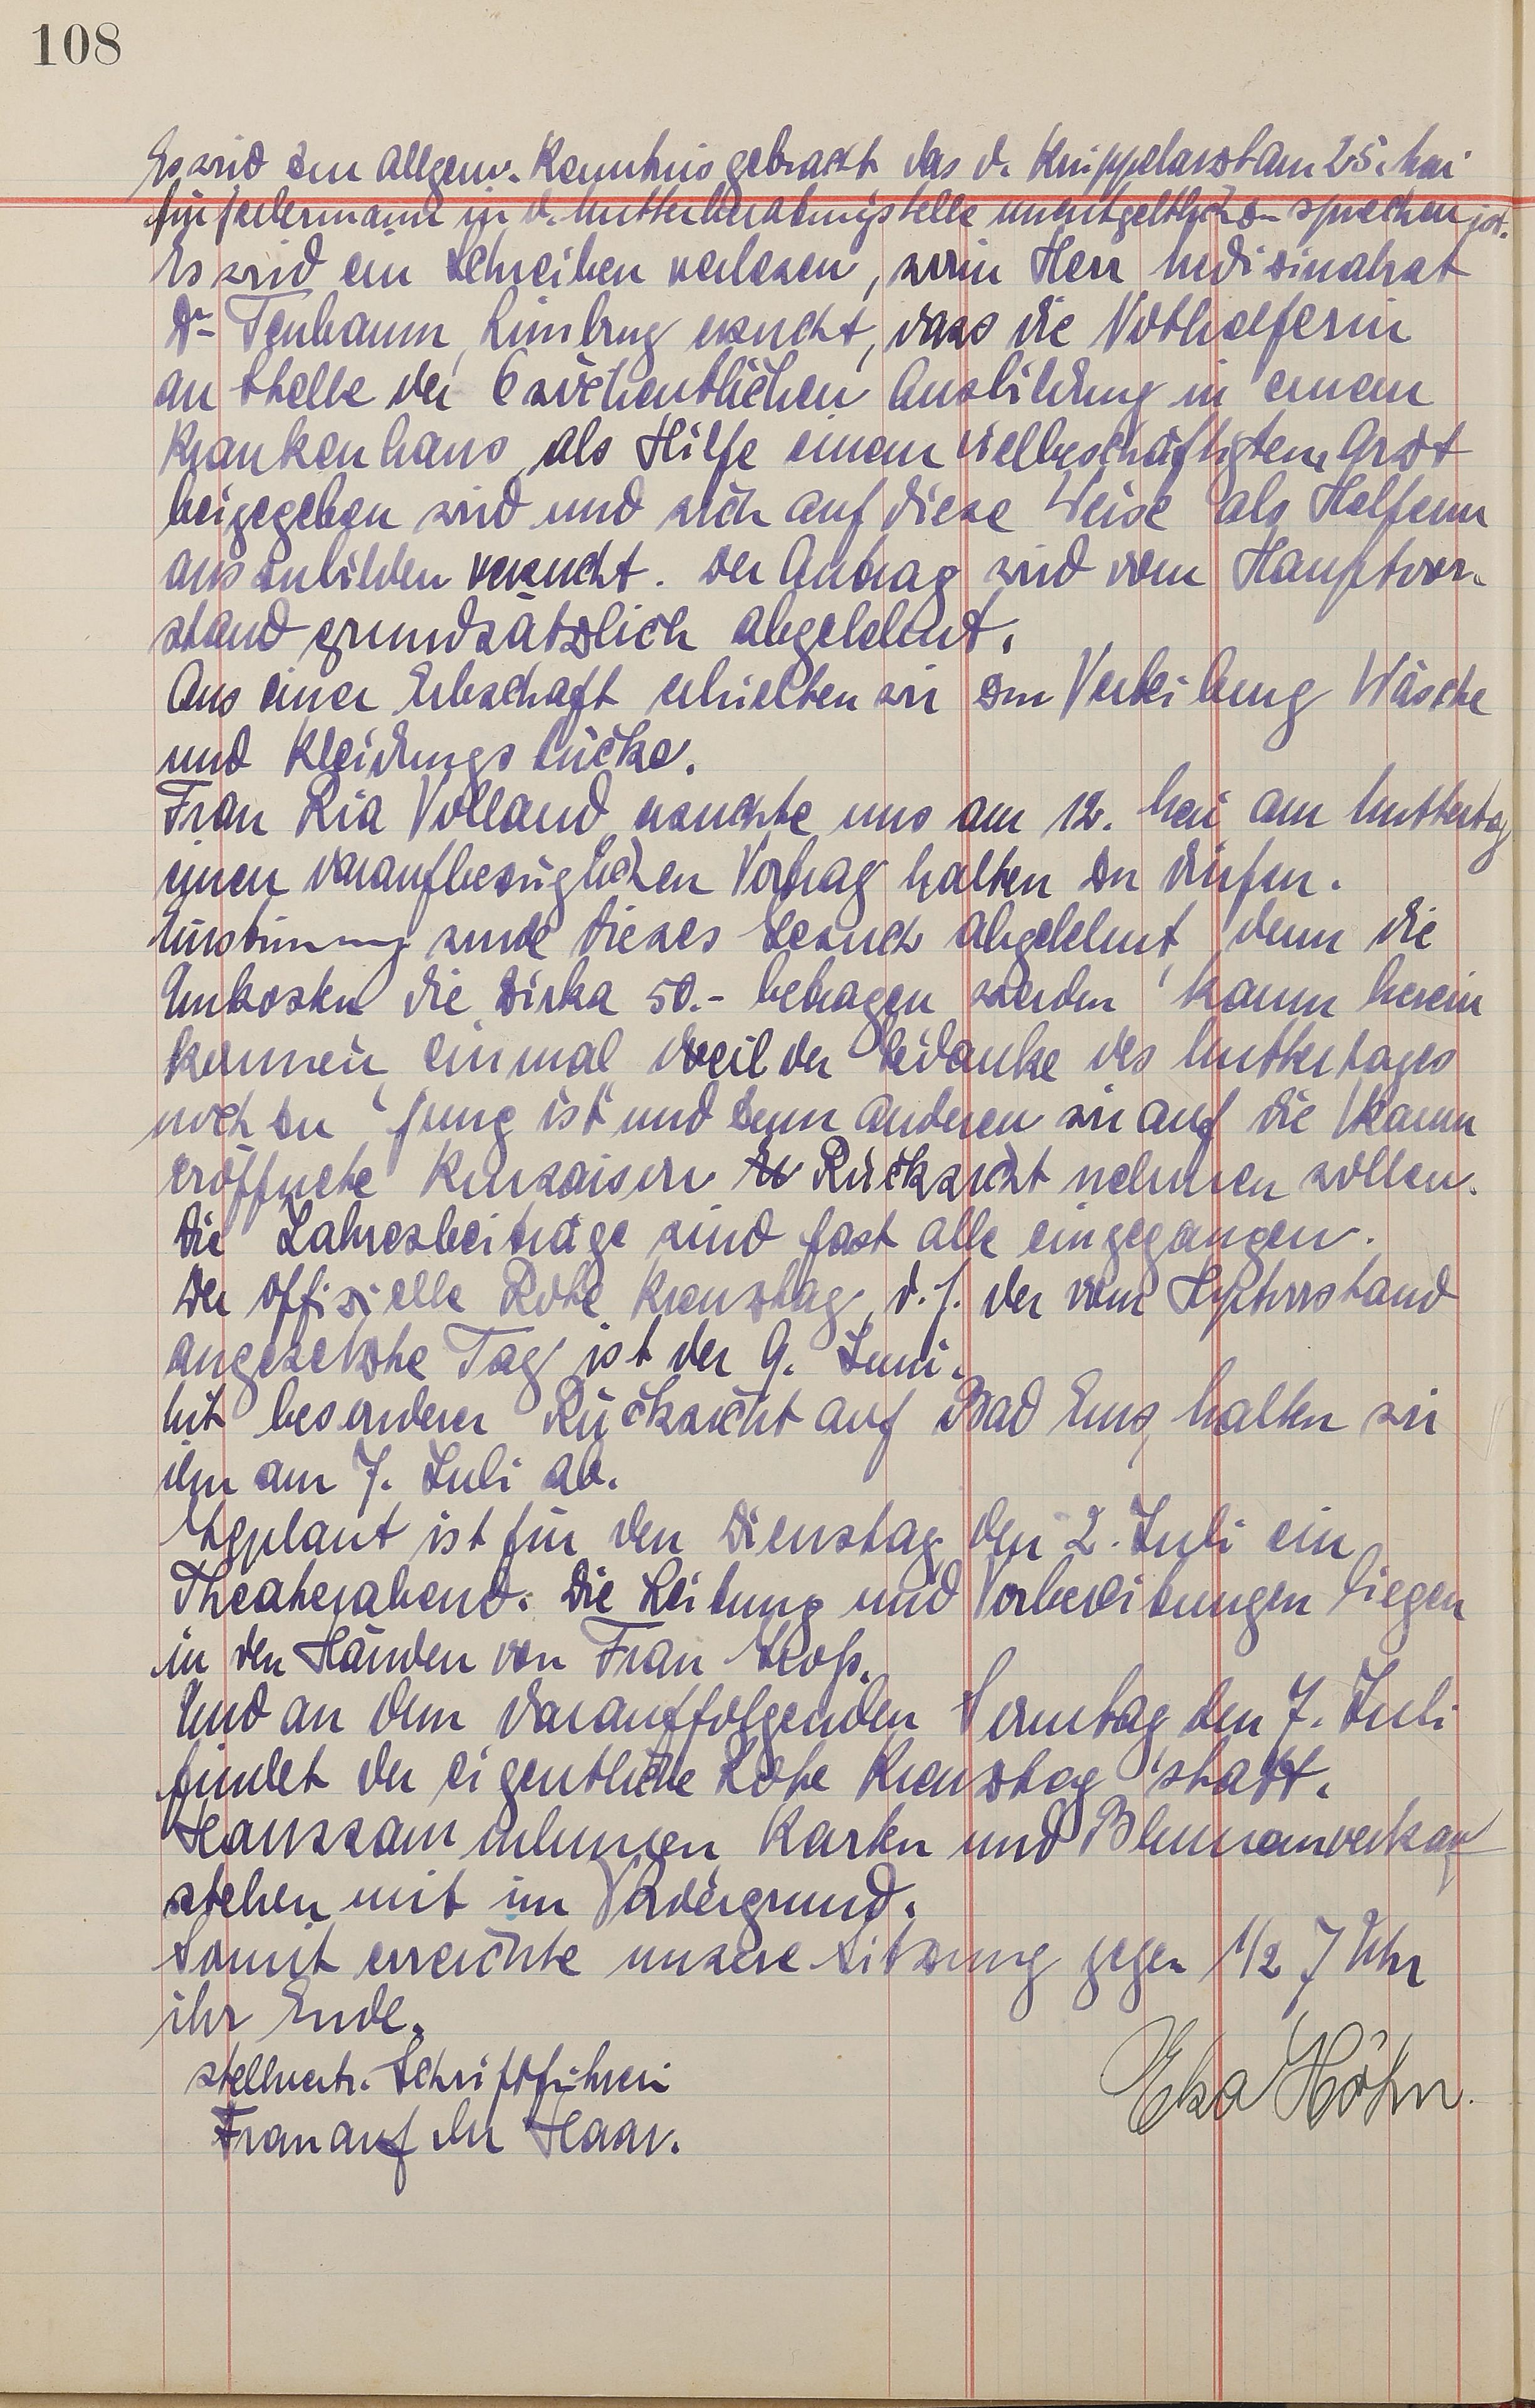 108
Es wird zur allgem. Kenntnis gebracht das d. Krüppelarzt am 25. Mai
für jedermann in d. Mutterberatungstelle unentgeltlich zu sprechen ist.
Es wird ein Schreiben verlesen, worin Herr Medizinalrat
Dr. Tenbaum, Limburg ersucht, dass die Nothelferin
an Stelle der 6 wöchentlichen Ausbildung in einem
Krankenhaus, als Hilfe einem vielbeschäftigten Arzt
beigegeben wird und sich auf diese Weise als Helferin
auszubilden versucht. Der Antrag wird vom Hauptvor-
stand grundsätzlich abgelehnt.
Aus einer Erbschaft erhielten wir zur Verteilung Wäsche
und Kleidungstücke.
Frau Ria Volland ersuchte uns am 12. Mai am Muttertag
einen daraufbezüglichen Vortrag halten zu dürfen.
Einstimmig wurde dieses Gesuch abgelehnt, denn die
Unkosten die zirka 50.- betragen werden kaum herein
kommen, einmal weil der Gedanke des Muttertages
noch zu "jung ist" und zum anderen wir auf die kaum
eröffnete Kursaison Rücksicht nehmen wollen.
Die Jahresbeiträge sind fast alle eingegangen.
Der offizielle Rote Kreuztag, d. h. der vom Hptvorstand
angesetzte Tag ist der 9. Juni.
Mit besonderer Rücksicht auf Bad Ems, halten wir
ihn am 7. Juli ab.
Geplant ist für den Dienstag den 2. Juli ein
Theaterabend. Die Leitung und Vorbereitungen liegen
in den Händen von Frau
Und an dem darauffolgenden Sonntag den 7. Juli
findet der eigentliche Rote Kreuztag statt.
Haussammlungen, Karten und Blumenverkauf
stehen mit im Vordergrund.
Somit erreichte unsere Sitzung gegen 1/2 7 Uhr
ihr Ende.
stellvertr. Schriftführerin
Frau auf der Haar.
Elsa Höhn.